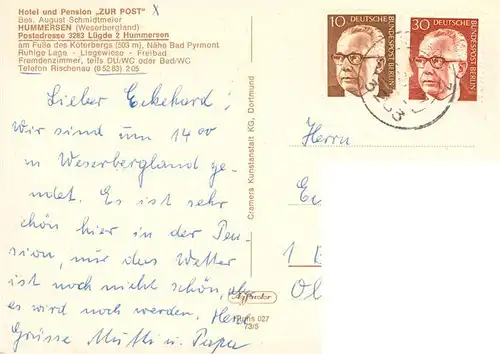 Hotel und Pension „ZUR POST"
Bes. August Schmidtmeier
HUMMERSEN (Weserbergland)
Postadresse 3283 Lügde 2 Hummersen
am Fuße des Köterbergs (503 m), Nähe Bad Pyrmont
Ruhige Lage - Liegewiese - Freibad
Fremdenzimmer, teils DU/WC oder Bad/WC
Telefon Rischenau (0 52 83) 2 05
x
Lieber Eckehard!
Wir sind um 14 00
in Weserbergland ge-
landet. Es ist sehr
schön hier in der Pen-
sion, nur das Wetter
ist noch nicht schön, aber
es wird noch werden. Herz.
Grüsse Mutti u. Papa
Cramers Kunstanstalt KG, Dortmund
Hums 027
73/5
10 DEUTSCHE BUNDESPOST BERLIN
30 DEUTSCHE BUNDESPOST BERLIN
3283
Herrn
1